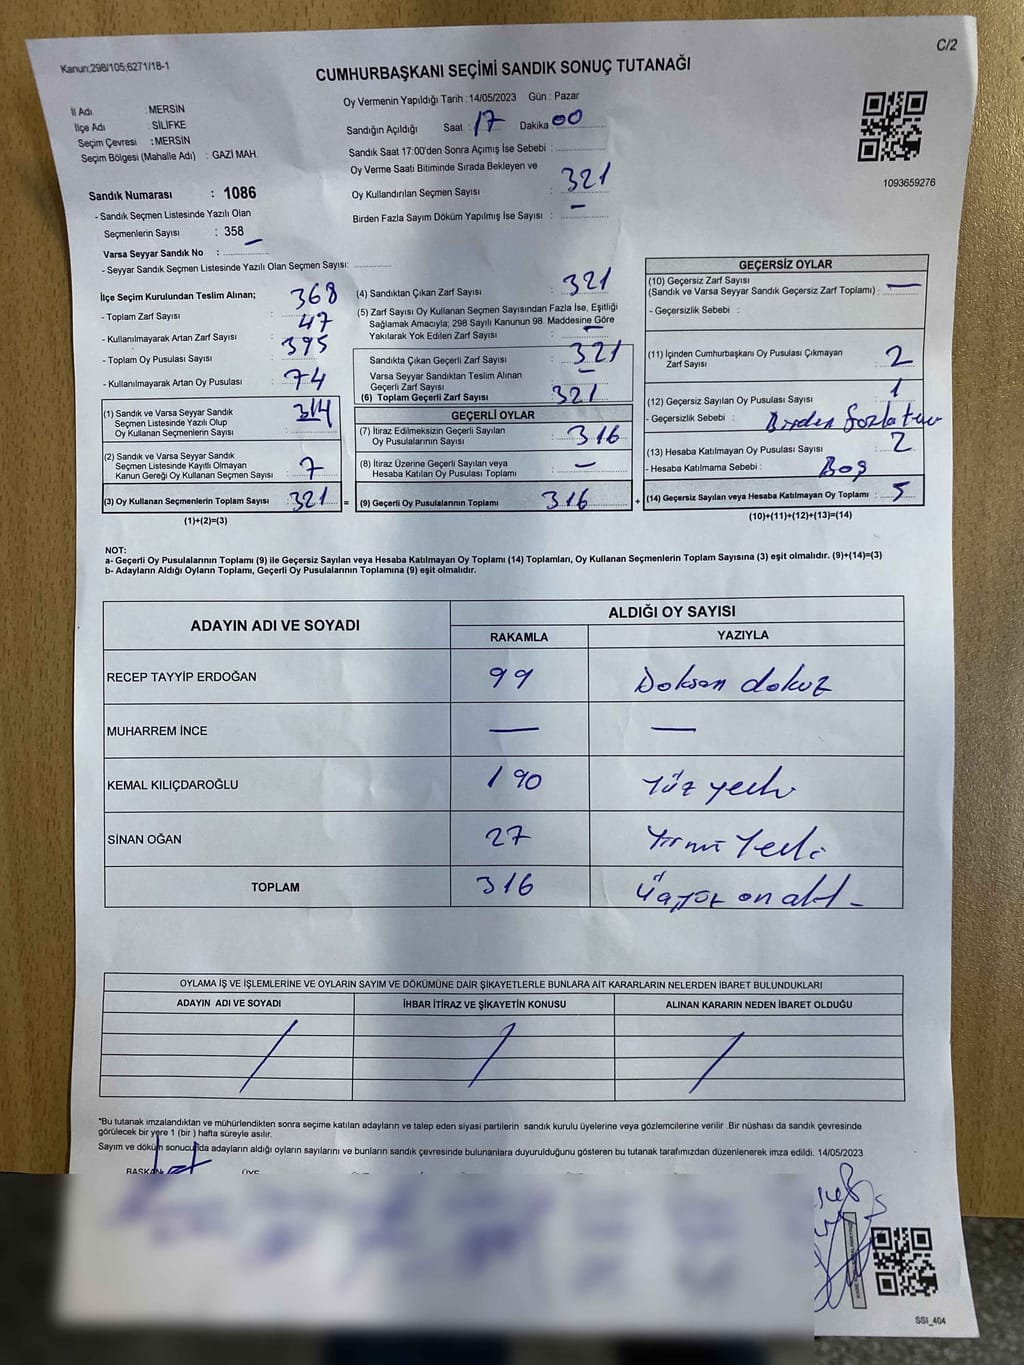 C/2
Kanun;298/105;6271/18-1
CUMHURBAŞKANI SEÇİMİ SANDIK SONUÇ TUTANAĞI
Oy Vermenin Yapıldığı Tarih :14/05/2023 Gün : Pazar
İl Adı : MERSİN
İlçe Adı : SİLİFKE
Seçim Çevresi : MERSİN
Seçim Bölgesi (Mahalle Adı) : GAZİ MAH.
Sandığın Açıldığı Saat : 17 Dakika : 00
Sandık Saat 17:00'den Sonra Açımış İse Sebebi :
Oy Verme Saati Bitiminde Sırada Bekleyen ve
Oy Kullandırılan Seçmen Sayısı : 321
Birden Fazla Sayım Döküm Yapılmış İse Sayısı : —
1093659276
Sandık Numarası : 1086
- Sandık Seçmen Listesinde Yazılı Olan
Seçmenlerin Sayısı : 358
Varsa Seyyar Sandık No : —
- Seyyar Sandık Seçmen Listesinde Yazılı Olan Seçmen Sayısı:
İlçe Seçim Kurulundan Teslim Alınan;
- Toplam Zarf Sayısı : 368
- Kullanılmayarak Artan Zarf Sayısı : 47
- Toplam Oy Pusulası Sayısı : 395
- Kullanılmayarak Artan Oy Pusulası : 74
(1) Sandık ve Varsa Seyyar Sandık
Seçmen Listesinde Yazılı Olup
Oy Kullanan Seçmenlerin Sayısı : 314
(2) Sandık ve Varsa Seyyar Sandık
Seçmen Listesinde Kayıtlı Olmayan
Kanun Gereği Oy Kullanan Seçmen Sayısı : 7
(3) Oy Kullanan Seçmenlerin Toplam Sayısı : 321 =
(1)+(2)=(3)
(4) Sandıktan Çıkan Zarf Sayısı : 321
(5) Zarf Sayısı Oy Kullanan Seçmen Sayısından Fazla İse, Eşitliği
Sağlamak Amacıyla; 298 Sayılı Kanunun 98. Maddesine Göre
Yakılarak Yok Edilen Zarf Sayısı : —
Sandıkta Çıkan Geçerli Zarf Sayısı : 321
Varsa Seyyar Sandıktan Teslim Alınan
Geçerli Zarf Sayısı : —
(6) Toplam Geçerli Zarf Sayısı : 321
GEÇERLİ OYLAR
(7) İtiraz Edilmeksizin Geçerli Sayılan
Oy Pusulalarının Sayısı : 316
(8) İtiraz Üzerine Geçerli Sayılan veya
Hesaba Katılan Oy Pusulası Toplamı : —
(9) Geçerli Oy Pusulalarının Toplamı : 316 +
GEÇERSİZ OYLAR
(10) Geçersiz Zarf Sayısı
(Sandık ve Varsa Seyyar Sandık Geçersiz Zarf Toplamı) : —
- Geçersizlik Sebebi :
(11) İçinden Cumhurbaşkanı Oy Pusulası Çıkmayan
Zarf Sayısı : 2
(12) Geçersiz Sayılan Oy Pusulası Sayısı : 1
- Geçersizlik Sebebi : Birden fazla
(13) Hesaba Katılmayan Oy Pusulası Sayısı : 2
- Hesaba Katılmama Sebebi : Boş
(14) Geçersiz Sayılan veya Hesaba Katılmayan Oy Toplamı : 5
(10)+(11)+(12)+(13)=(14)
NOT:
a- Geçerli Oy Pusulalarının Toplamı (9) ile Geçersiz Sayılan veya Hesaba Katılmayan Oy Toplamı (14) Toplamları, Oy Kullanan Seçmenlerin Toplam Sayısına (3) eşit olmalıdır. (9)+(14)=(3)
b- Adayların Aldığı Oyların Toplamı, Geçerli Oy Pusulalarının Toplamına (9) eşit olmalıdır.
ADAYIN ADI VE SOYADI ALDIĞI OY SAYISI
RAKAMLA YAZIYLA
RECEP TAYYİP ERDOĞAN 99 Doksan dokuz
MUHARREM İNCE — —
KEMAL KILIÇDAROĞLU 190 Yüz
SİNAN OĞAN 27 Yirmi Yedi
TOPLAM 316 Üçyüz on altı
OYLAMA İŞ VE İŞLEMLERİNE VE OYLARIN SAYIM VE DÖKÜMÜNE DAİR ŞİKAYETLERLE BUNLARA AİT KARARLARIN NELERDEN İBARET BULUNDUKLARI
ADAYIN ADI VE SOYADI İHBAR İTİRAZ VE ŞİKAYETİN KONUSU ALINAN KARARIN NEDEN İBARET OLDUĞU
"Bu tutanak imzalandıktan ve mühürlendikten sonra seçime katılan adayların ve talep eden siyasi partilerin sandık kurulu üyelerine veya gözlemcilerine verilir .Bir nüshası da sandık çevresinde
görülecek bir yere 1 (bir ) hafta süreyle asılır.
Sayım ve döküm sonucunda adayların aldığı oyların sayılarını ve bunların sandık çevresinde bulunanlara duyurulduğunu gösteren bu tutanak tarafımızdan düzenlenerek imza edildi. 14/05/2023
BAŞKAN ÜYE
SSI_404